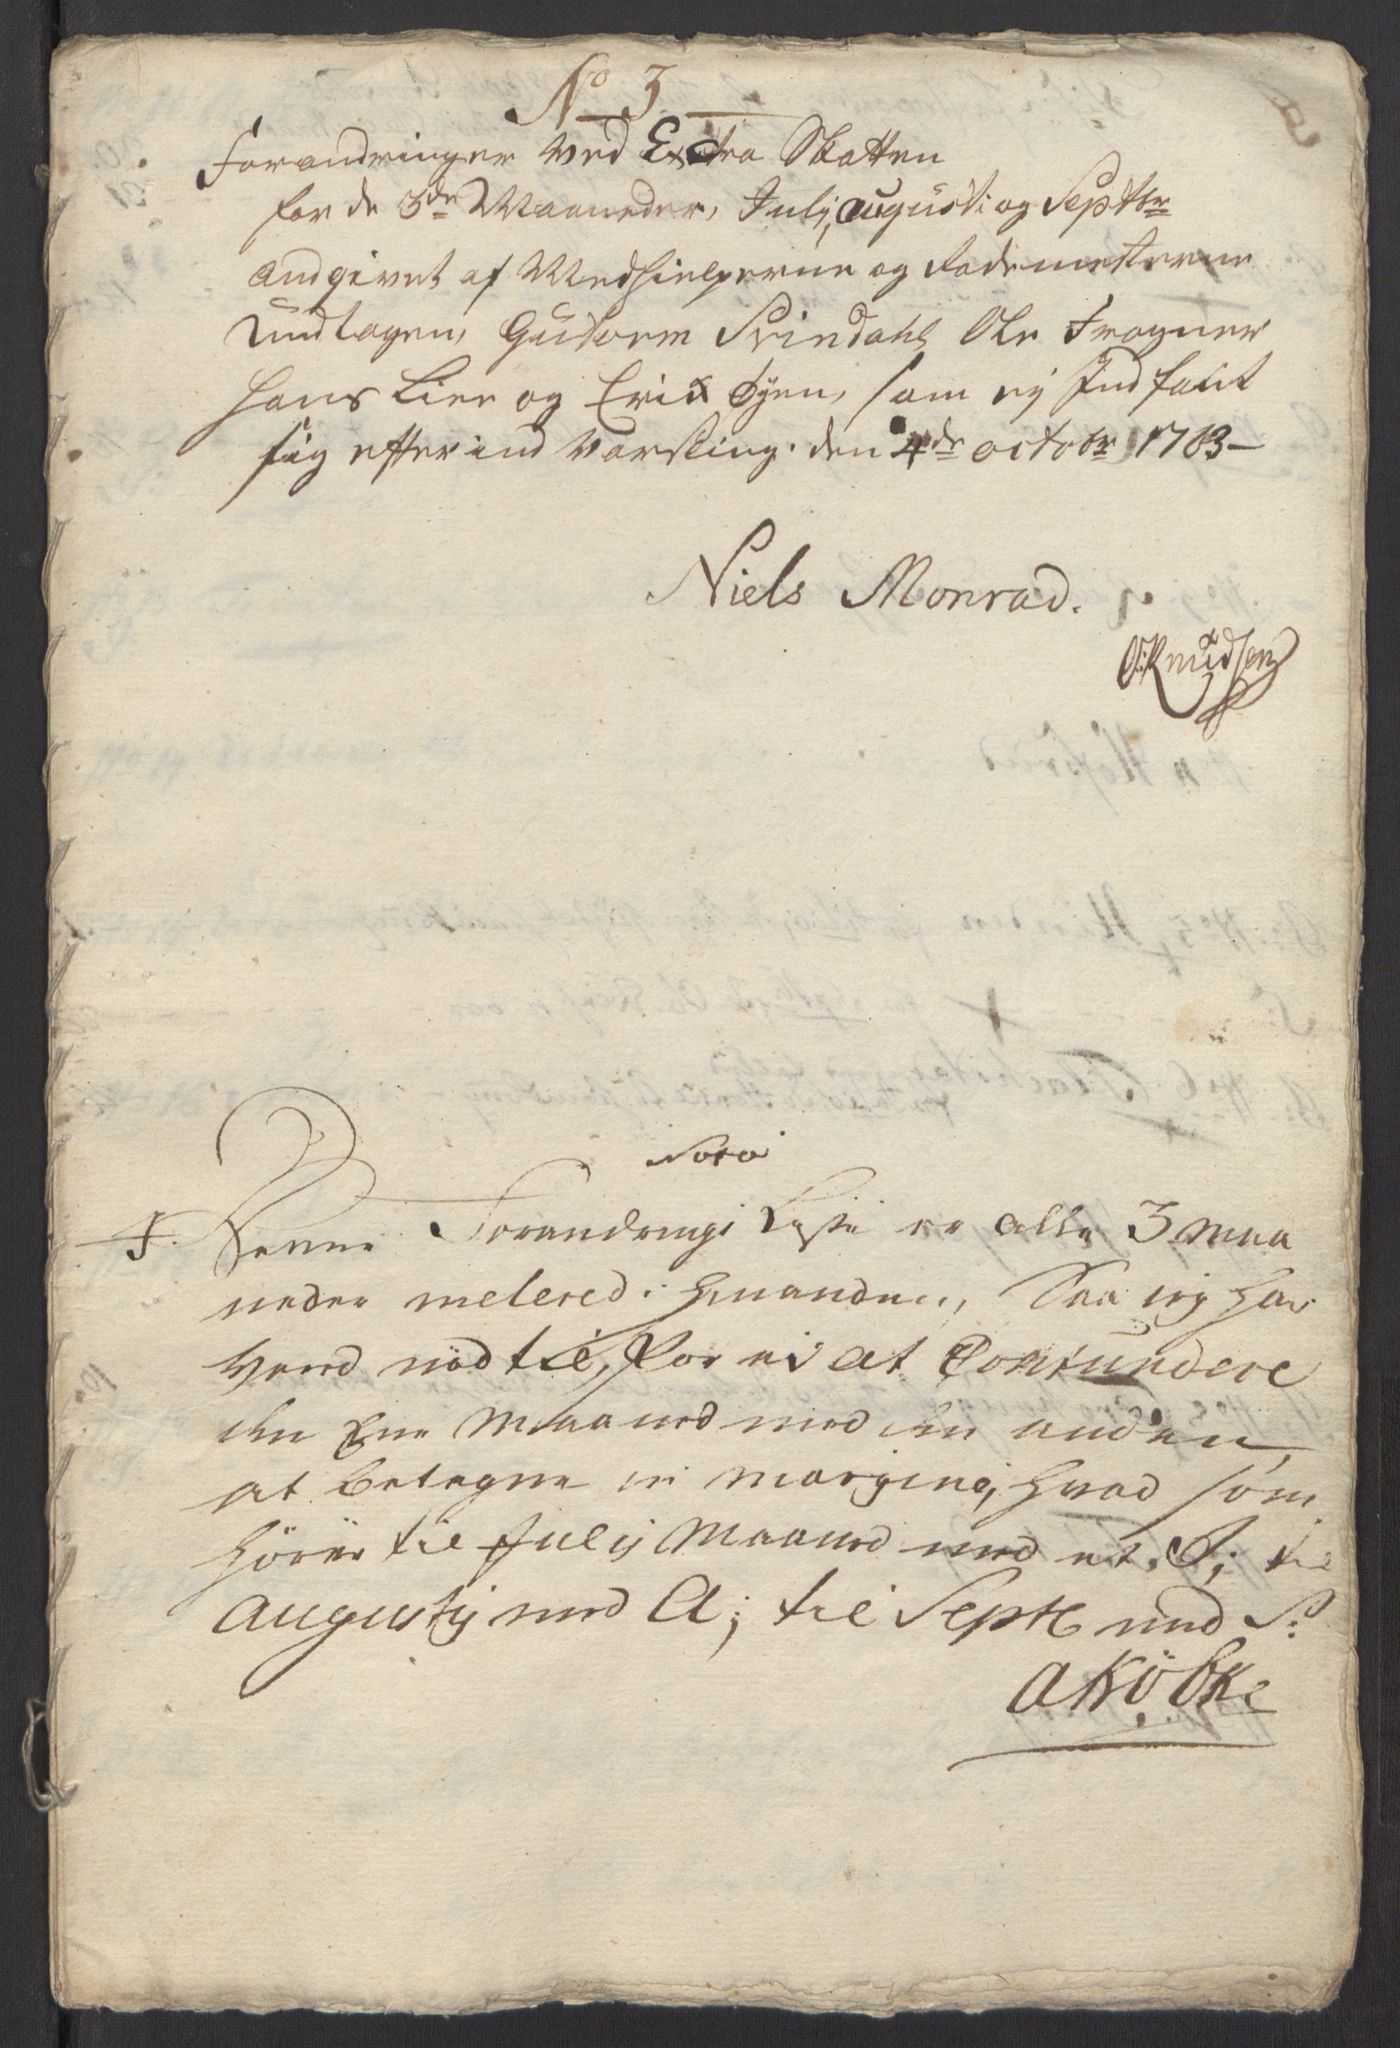 No 3
Forandringer ved Extra Skatten
for de 3de Maaneder, Julij, Augusti og Septbr
Andgivet af Medhielperne og Rodemesterne
Undtagen, Guttorm Svindahl Ole Frogner
Hans Lier og Erik Øyen, som ej Indfandt
sig efter ind Varsling. den 4de octobr 1763 –
Niels Monrad.
O: Knudsen
Nota
J. Denne Forandrings Liste er alle 3 maa
neder meleret i hinanden, Saa jeg har
værd nød til, for ei at Confundere
den Ene Maaned med den anden,
at betegne in margine, hvad som
hører til Julij Maaned med et. J; til
Augustij med A; til Septb med S:
A Købke